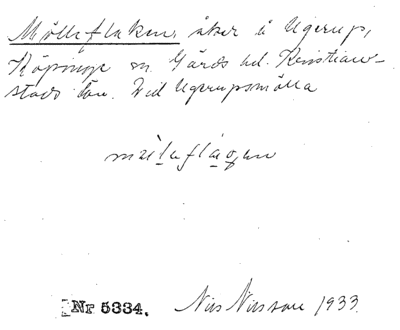 Mölleflaken, åker å Ugerup,
Köpinge sn. Gärds hd. Kristian-
stads län. Vid Ugerupsmölla
Nr 5334. Nils Nilsson 1933.